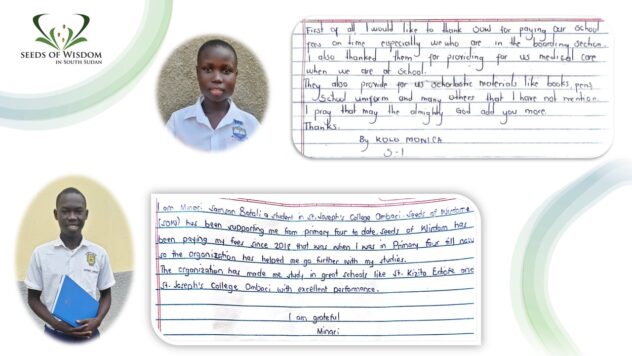 SEEDS OF WISDOM
IN SOUTH SUDAN
First of all I would like to thank SOW for paying our school
fees on time especially we who are in the boarding section.
I also thanked them for providing for us medical care
when we are at school.
They also provide for us scholastic materials like books, pens
School uniform and many others that I have not mention.
I pray that may the almighty God add you more.
Thanks.
By KOLO MONICA
S-1
I am Minari Samson Batali a student in St. Joseph's College Ombaci. Seeds of Wisdom
(SOW) has been supporting me from primary four to date. Seeds of Wisdom has
been paying my fees since 2018 that was when I was in Primary four till now
so the organization has helped me go further with my studies.
The organization has made me study in great schools like St. Kizito and
St. Joseph's College Ombaci with excellent performance.
I am grateful
Minari